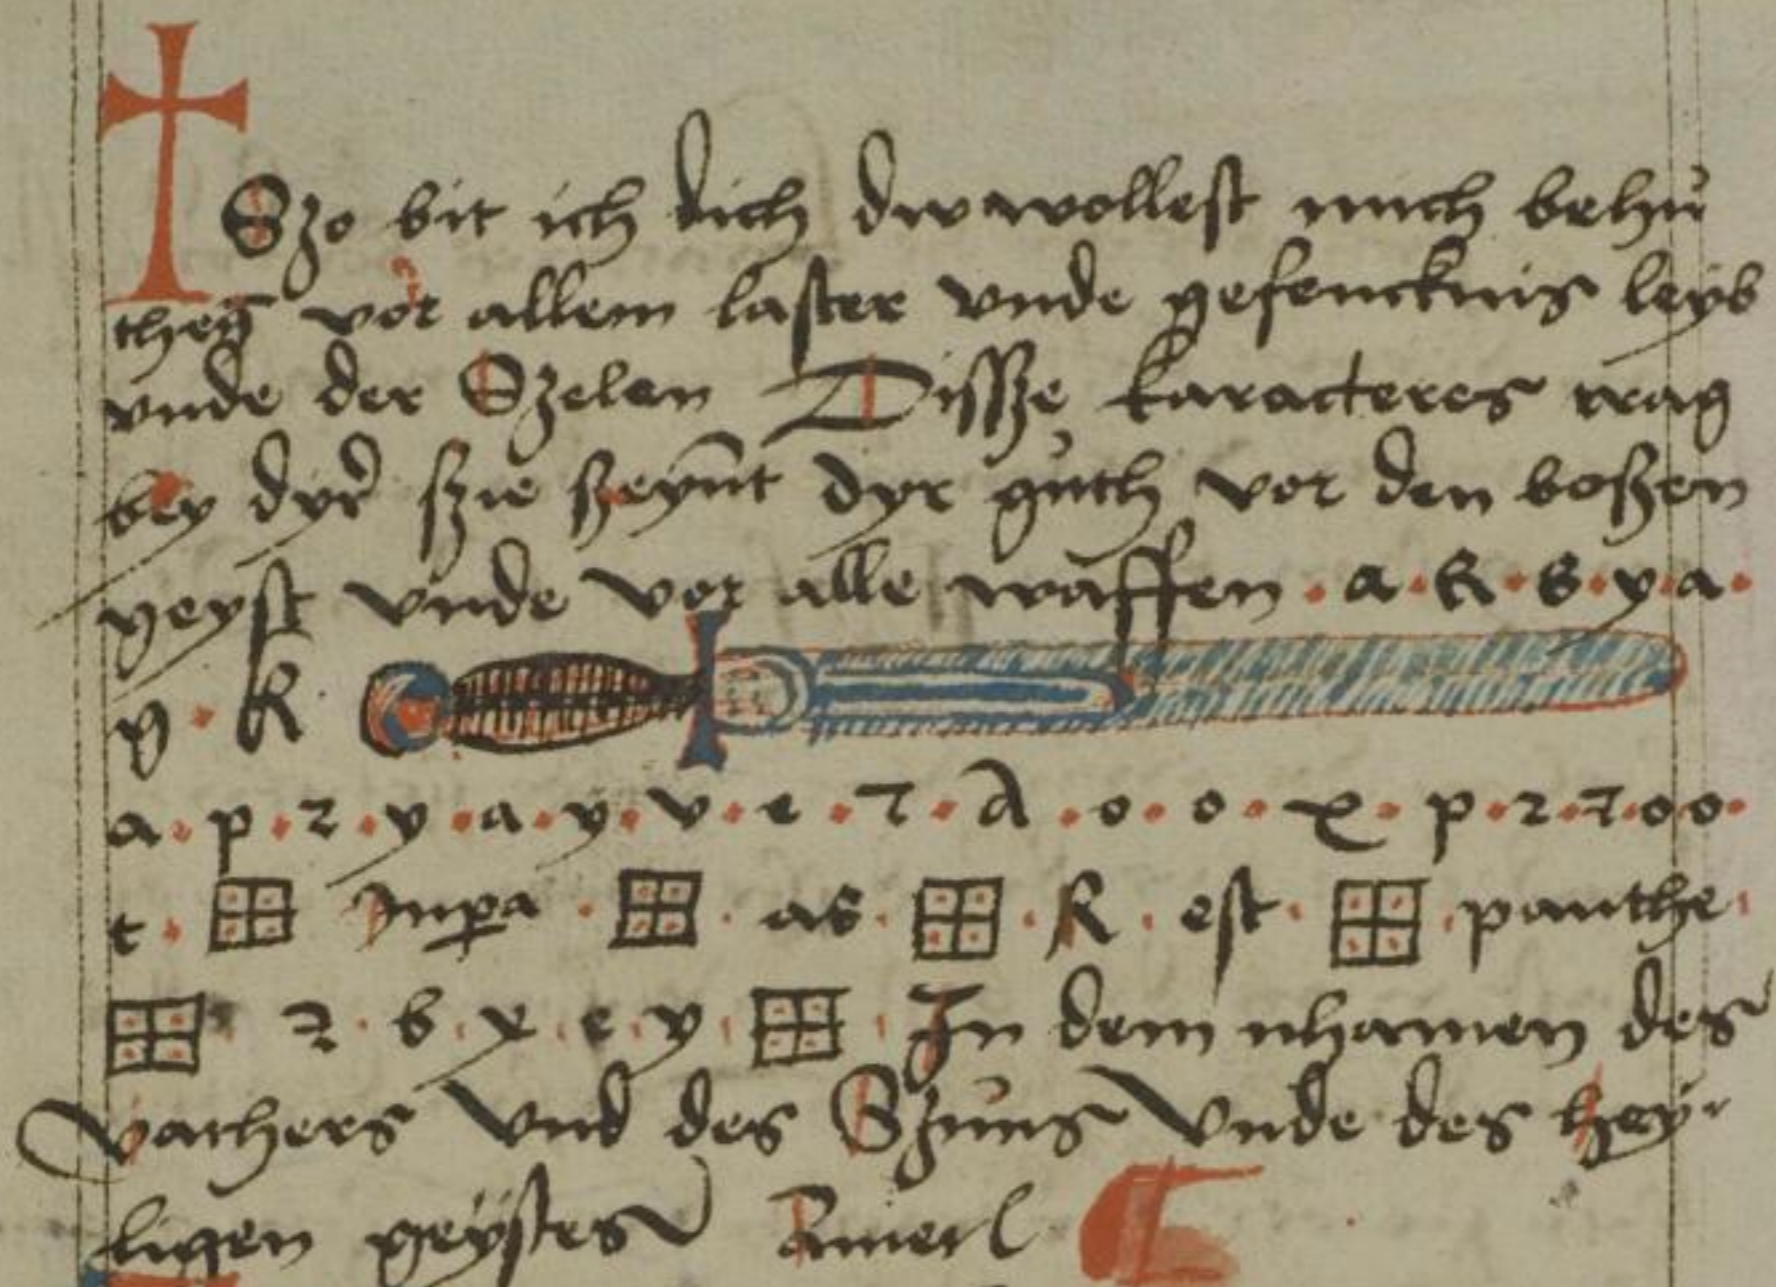 Szo bit ich dich dw wollest mich behů
theñ vor allem laster vnde gefencknis leyb
vnde der Szelen Dissze karacteres trag
bey dyr szie szeynt dyr guth vor den boszen
geyst vnde vor alle waffen · a · R · s · y · a ·
g · R
a · p · z · y · a · y · v · e · z · A · o · o · x · p · z · z · o o ·
t · Inpa · as · R · est · panthe ·
z · b · x · e · y In dem nhamen des
Vathers vnd des Szuns vnde des hey-
ligen geystes Amen